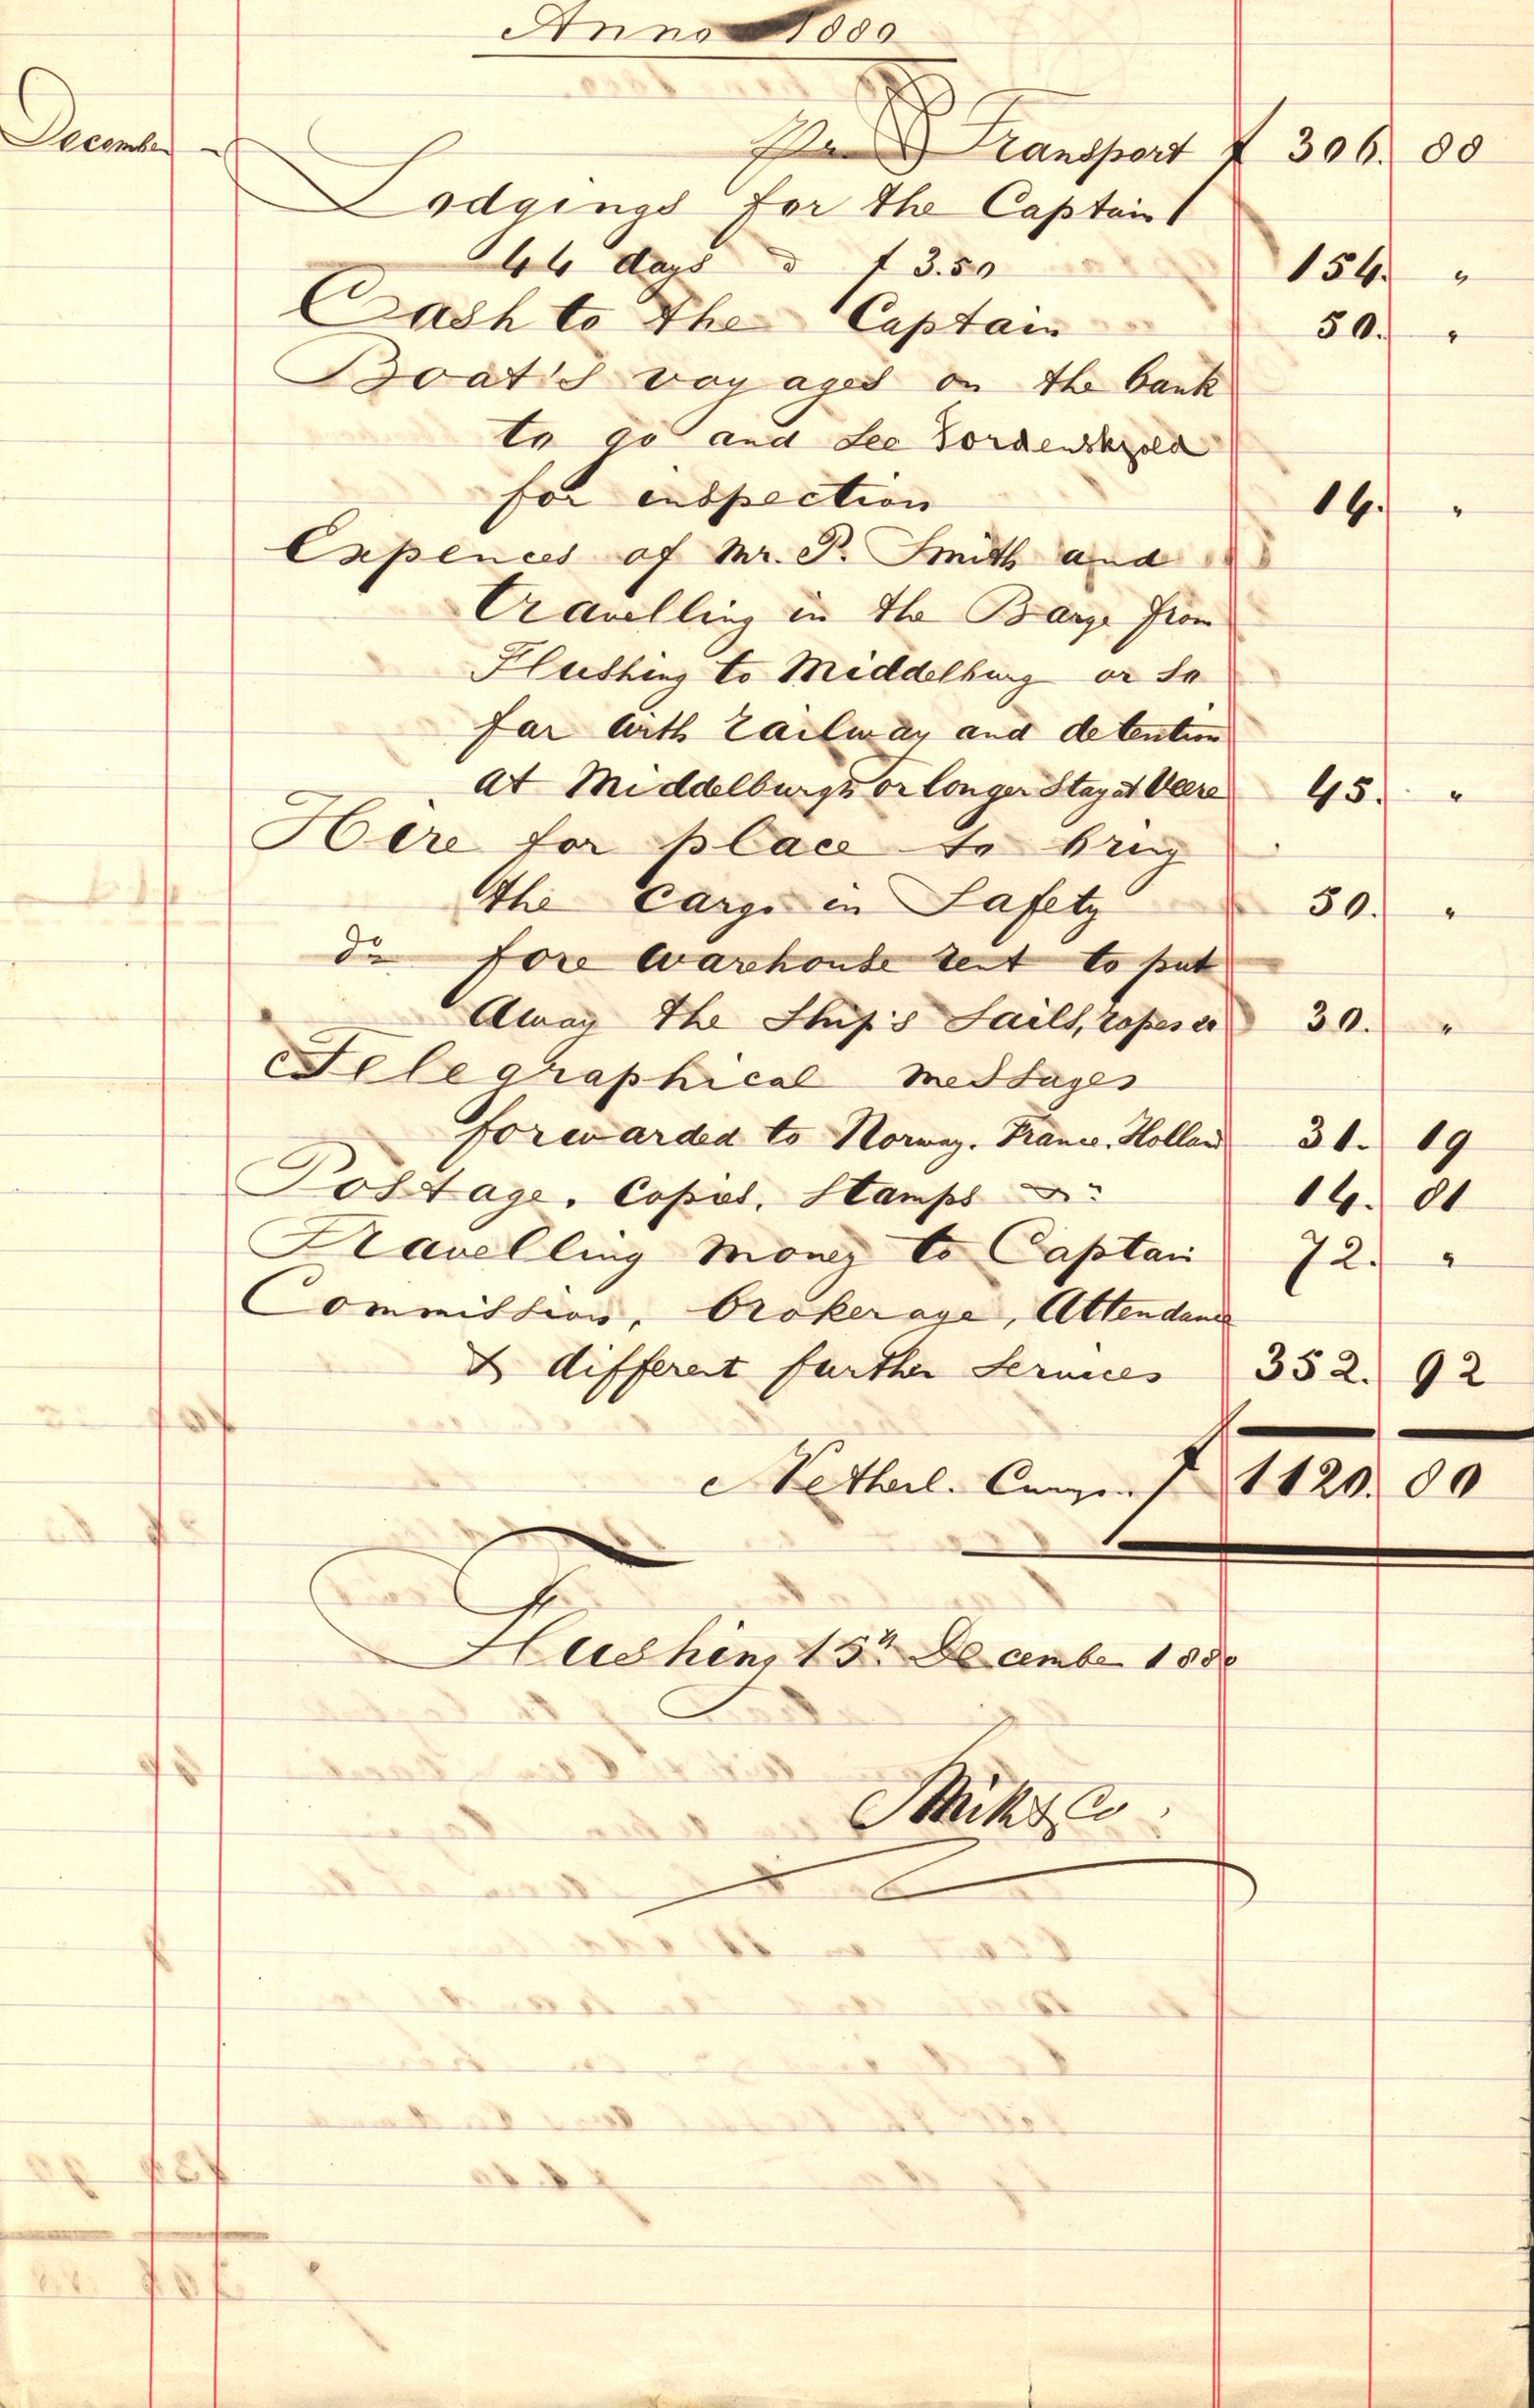 Anno 1880
December Pr. Transport ƒ 306. 88
Lodgings for the Captain
44 days a ƒ 3.50 154. "
Cash to the Captain 50. "
Boat's voyages on the bank
to go and see Tordenskjold
for inspection 14. "
Expences of Mr. P. Smith and
travelling in the Barge from
Flushing to Middelburg or so
far with railway and detention
at Middelburgh or longer Stay at Veere 45. "
Hire for place to bring
the Cargo in Safety 50. "
do fore warehouse rent to put
Away the Ship's Sails, ropes &c 30. "
Telegraphical messages
forwarded to Norway. France. Holland 31. 19
Postage. Copies. Stamps &c 14. 81
Travelling money to Captain 72. "
Commission, brokerage, Attendance
& different further Services 352. 92
Netherl. Curr. ƒ 1120. 80
Flushing 15th December 1880
Smith & Co.